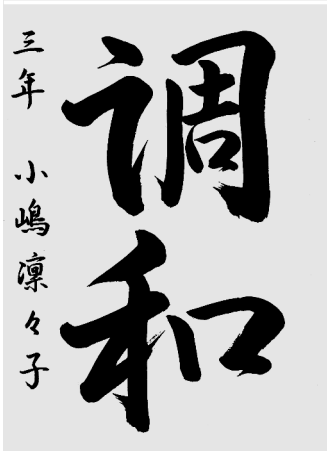 調和
三年 小嶋凜々子